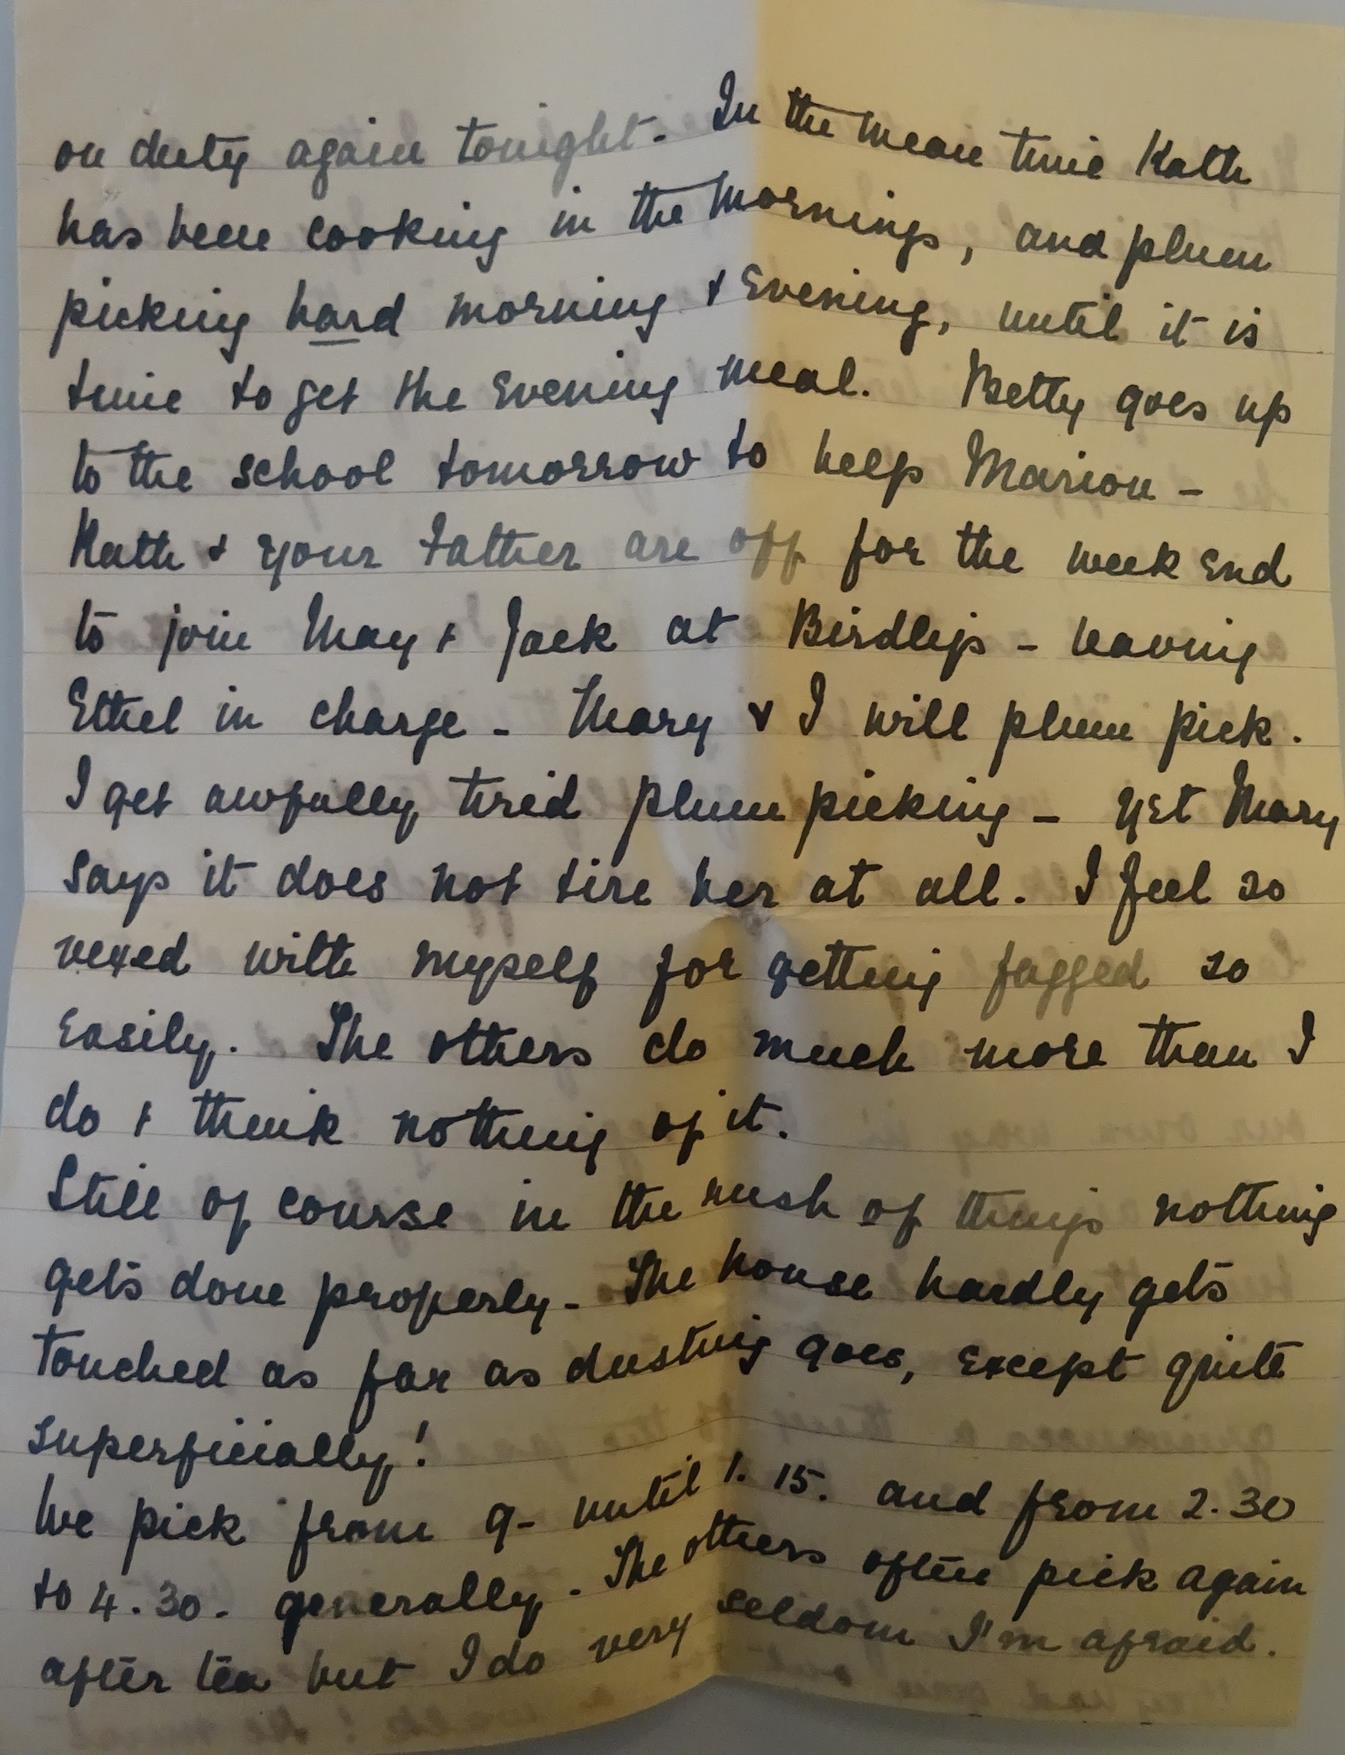 on duty again tonight. In the mean time Kath
has been cooking in the mornings, and plum
picking hard morning & Evening, until it is
time to get the Evening meal. Betty goes up
to the school tomorrow to help Marion -
Kath & your Father are off for the week end
to join May & Jack at Birdlip - leaving
Ethel in charge - Mary & I will plum pick.
I get awfully tired plum picking - yet Mary
says it does not tire her at all. I feel so
vexed with myself for getting fagged so
Easily. The others do much more than I
do & think nothing of it.
Still of course in the rush of things nothing
gets done properly - The house hardly gets
touched as far as dusting goes, Except quite
superficially!
We pick from 9 - until 1. 15. and from 2.30
to 4.30. generally - The others often pick again
after tea but I do very seldom I'm afraid.